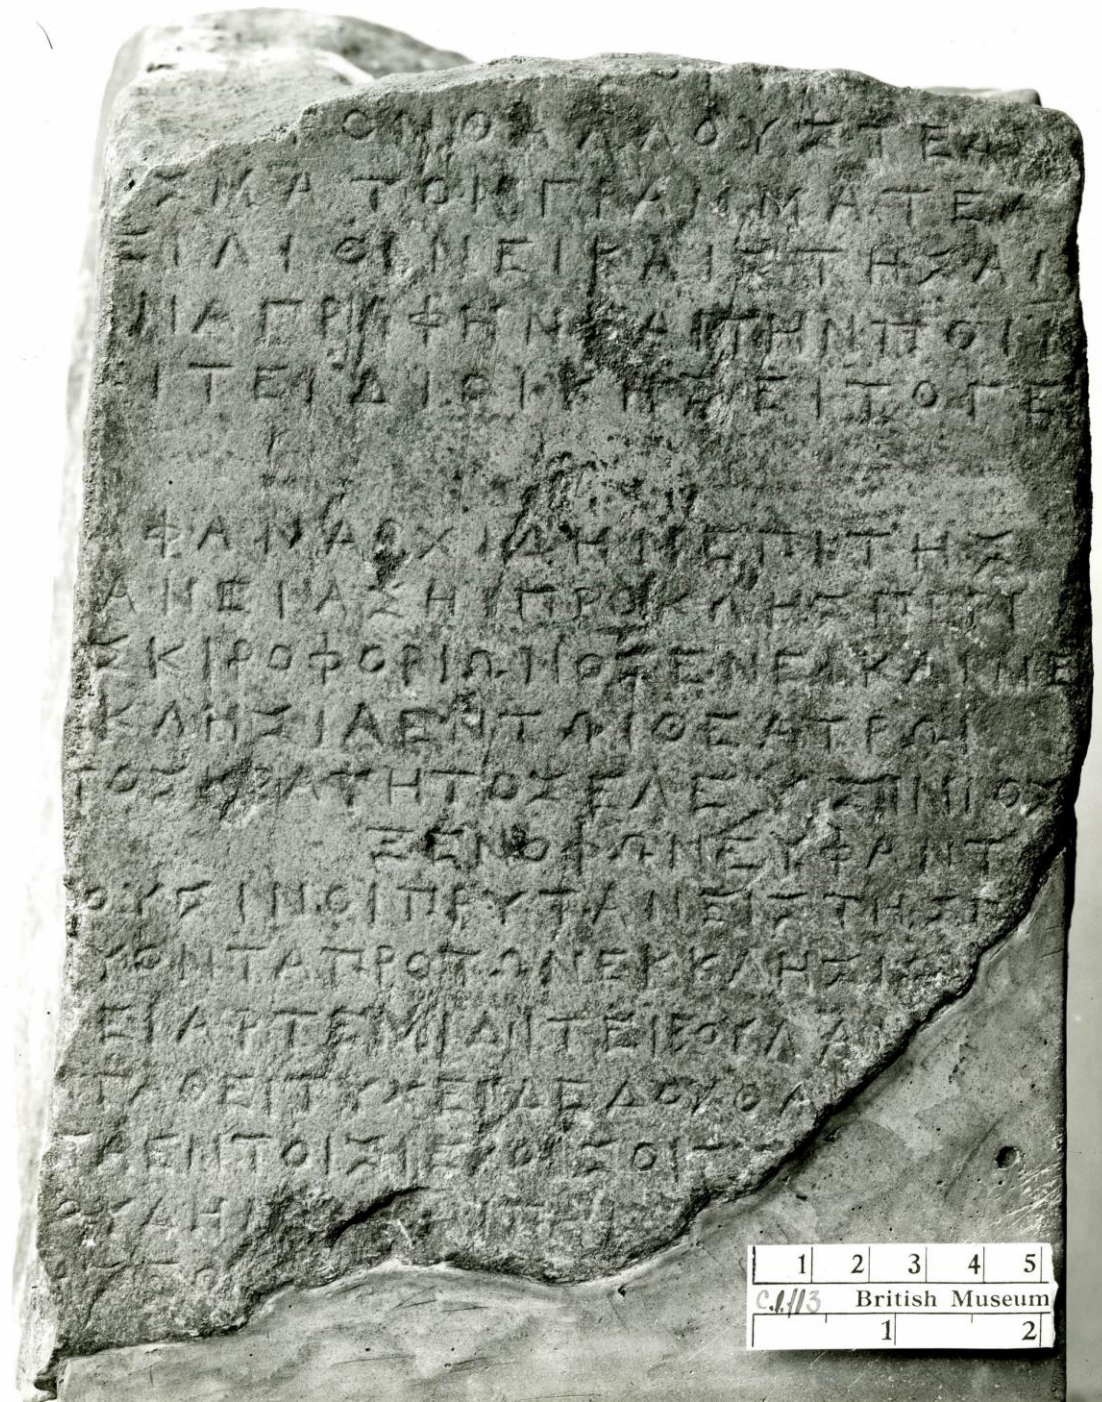 ΟΝΘΑΛΛΟΥΣΤΕΦ
ΣΜΑΤΟΝΓΡΑΜΜΑΤΕΑ
ΕΙΛΙΘΙΝΕΙΚΑΙΣΤΗΣΑΙ
ΝΑΓΡΑΦΗΝΚΑΙΤΗΝΠΟΙΗ
ΙΤΕΙΔΙΟΙΚΗΣΕΙΤΟΓΕ
ΦΑΝΑΡΧΙΔΗΝΕΠΙΤΗΣ
ΑΝΕΙΑΣΗΙΠΡΟΚΛΗΣΠΕΡΙ
ΣΚΙΡΟΦΟΡΙΩΝΟΣΕΝΕΙΚΑΙΝΕ
ΚΛΗΣΙΑΕΝΤΩΙΘΕΑΤΡΩΙ
ΤΟΣΚΡΑΤΗΤΟΣΕΛΕΥΣΙΝΙΟΣ
ΞΕΝΟΦΩΝΕΥΦΑΝΤ
ΟΥΣΙΝΟΙΠΡΥΤΑΝΕΙΣΤΗΣΓ
ΥΟΝΤΑΠΡΟΤΩΝΕΚΚΛΗΣΙΩ
ΕΙΑΡΤΕΜΙΔΙΤΕΙΒΟΥΛΑΙ
ΓΑΘΕΙΤΥΧΕΙΔΕΔΟΧΘΑ
ΤΑΕΝΤΟΙΣΙΕΡΟΙΣΟΙΣ
1 2 3 4 5
C.I.113 British Museum
1 2